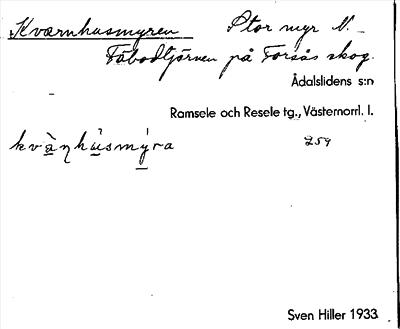 Kvarnhusmyren Stor myr N.
Fäbodtjärnen på Forsås skog.
Ådalslidens s:n
Ramsele och Resele tg., Västernorrl. l.
kvàṇhu̇smýra 259
Sven Hiller 1933